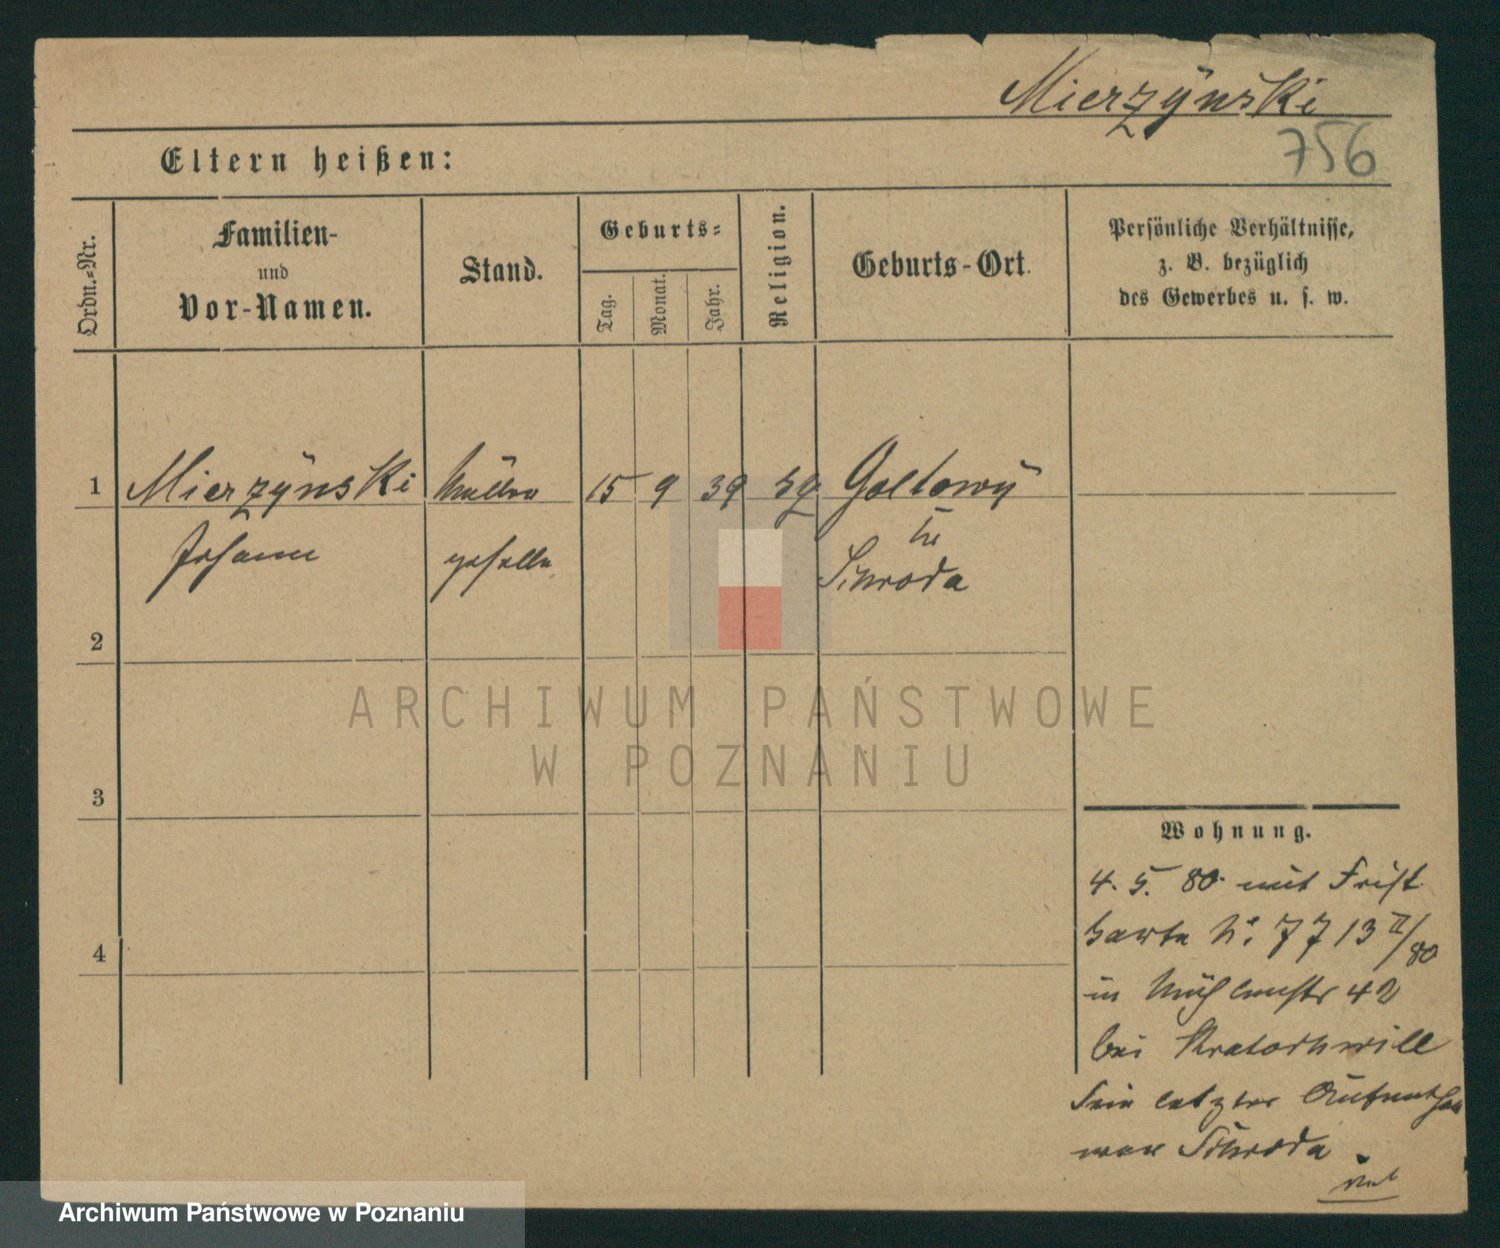 Mierzÿnski
756
Eltern heißen:
Ordn.=Nr.
Familien-
und
Vor-Namen.
Stand.
Geburts=
Tag.
Monat.
Jahr.
Religion.
Geburts-Ort.
Persönliche Verhältnisse,
z. B. bezüglich
des Gewerbes u. s. w.
1 Mierzÿnski Müller 15 9 39
Johann geselle Schroda
2
3
4
Wohnung.
4. 5. 80. mit Frist
karte No. 7713 II/80
in Mühlenstr 42
bei Kratochwill
Sein letzter
war Schroda
ARCHIWUM PAŃSTWOWE
W POZNANIU
Archiwum Państwowe w Poznaniu